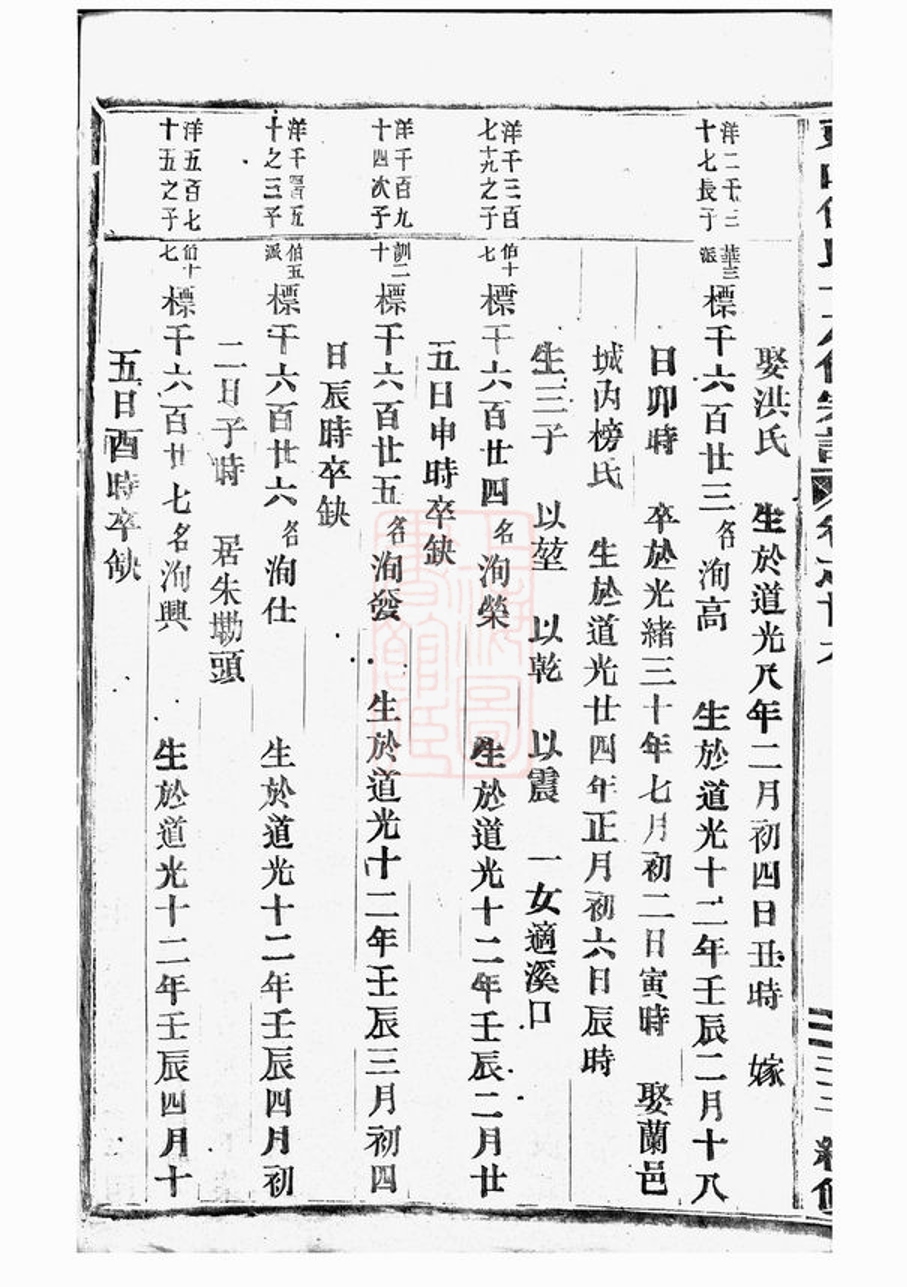 娶洪氏 生於道光八年二月初四日丑時 嫁
洋二千三十七長子 華三派 標千六百廿三 名洵高 生於道光十二年壬辰二月十八
日卯時 卒於光緒三十年七月初二日寅時 娶蘭邑
城內榜氏 生於道光廿四年正月初六日辰時
生三子 以堃 以乾 以震 一女適溪口
洋千三百七十九之子 伯十七 標千六百廿四 名洵榮 生於道光十二年壬辰二月廿
五日申時卒缺
洋千百九十四次子 訓二十 標千六百廿五 名洵發 生於道光十二年壬辰三月初四
日辰時卒缺
洋千百五十之三子 伯五派 標千六百廿六 名洵仕 生於道光十二年壬辰四月初
二日子時 居朱塘頭
洋五百七十五之子 伯十七 標千六百廿七 名洵興 生於道光十二年壬辰四月十
五日酉時卒缺